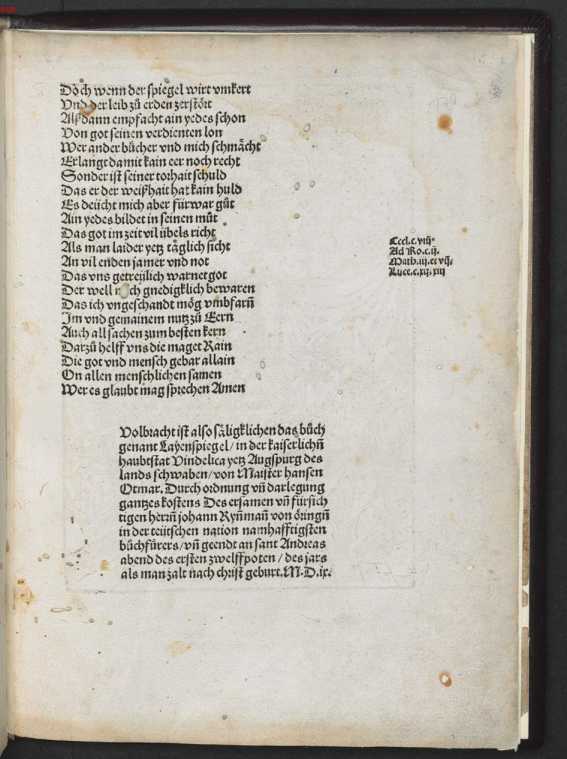 Doch wenn der spiegel wirt vmkert
Vnd der leib zů erden zerstört
Alßdann empfacht ain yedes schon
Von got seinen verdienten lon
Wer ander bücher vnd mich schmächt
Erlangt damit kain eer noch recht
Sonder ist seiner torhait schuld
Das er der weißhait hat kain huld
Es deücht mich aber fürwar gůt
Ain yedes bildet in seinen můt
Das got im zeit vil übels richt
Als man laider yetz täglich sicht
An vil enden jamer vnd not
Das vns getreülich warnet got
Der well mich gnedigklich bewaren
Das ich vngeschandt mög vmbfarn̄
Im vnd gemainem nutz zů Eern
Auch all sachen zum besten kern
Darzů helff vns die maget Rain
Die got vnd mensch gebar allain
On allen menschlichen samen
Wer es glaubt mag sprechen Amen
Eccl.c.viij.
Ad Ro.c.ij.
Math.iij.et vij.
Luce.c.xij.xiij
Volbracht ist also säligklichen das bůch
genant Layenspiegel / in der kaiserlichn̄
haubtstat Vindelica yetz Augspurg des
lands schwaben / von Maister hansen
Otmar. Durch ordnung vn̄ darlegung
gantzes kostens Des ersamen vn̄ fürsich
tigen herrn̄ johann Rynman̄ von öringn̄
in der teütschen nation namhafftigsten
bůchfürers / vn̄ geendt an sant Andreas
abend des ersten zwelffpoten / des jars
als man zalt nach christ geburt. M.D.ix.